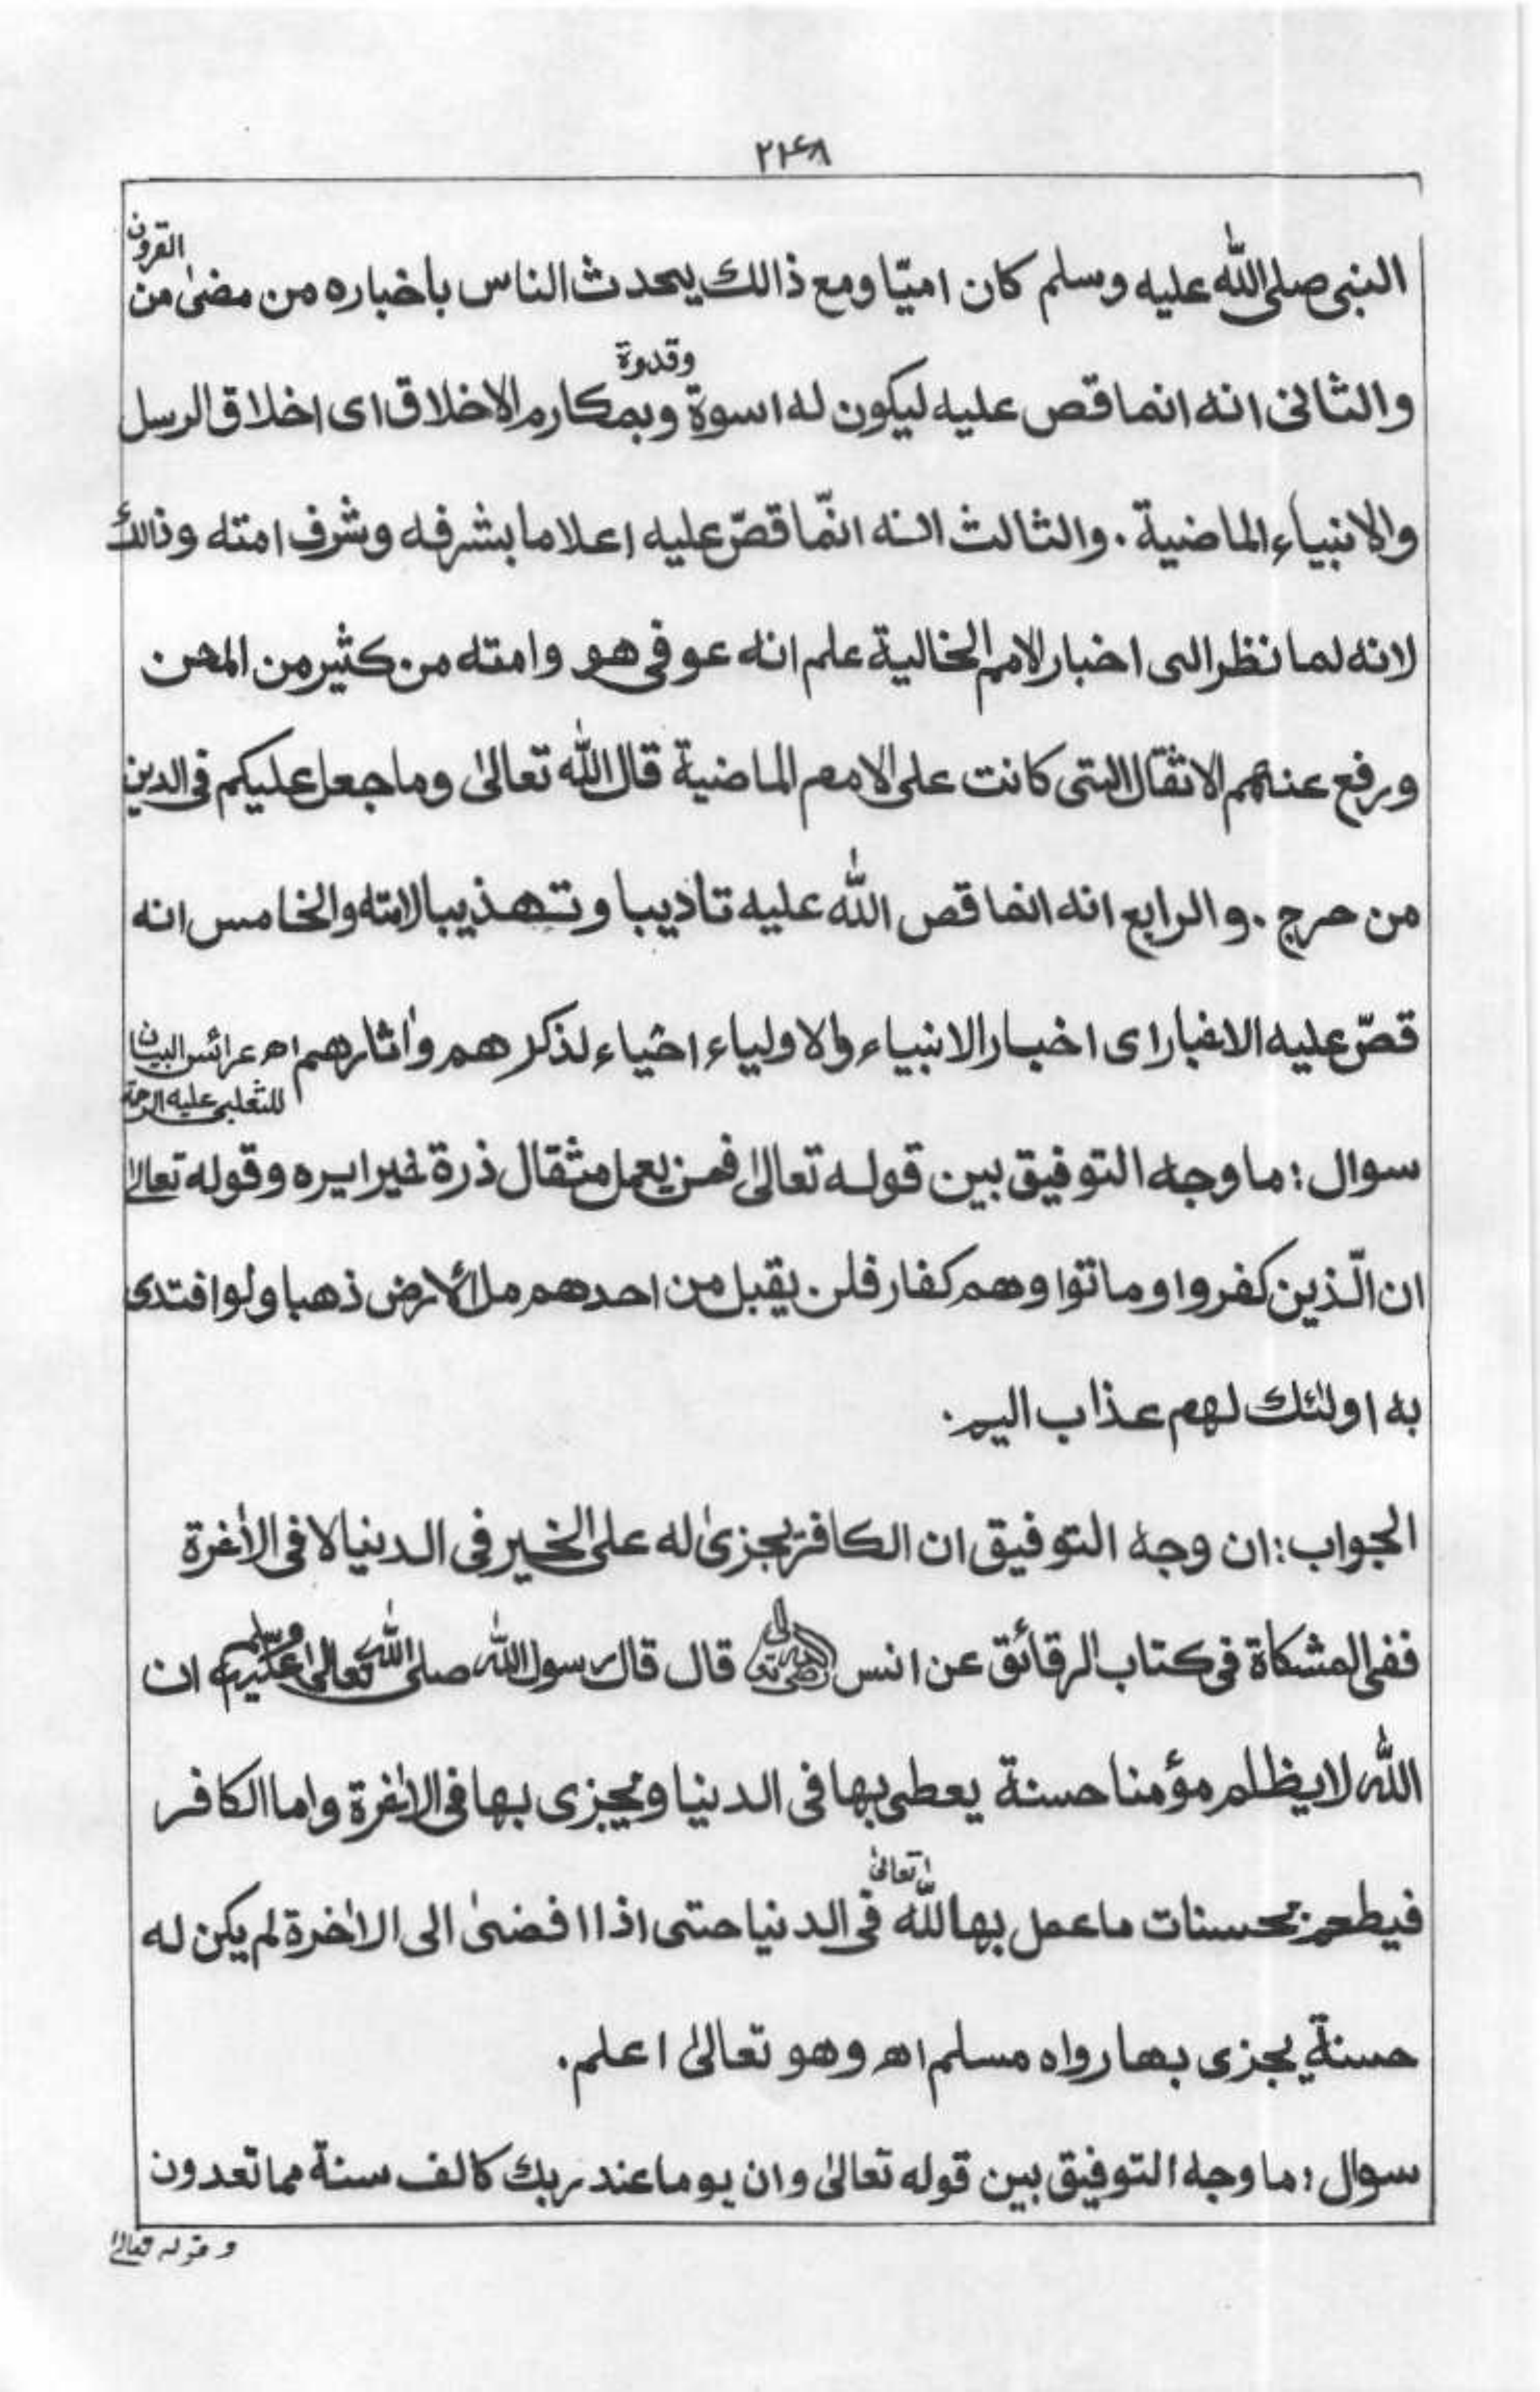 ۲۴۸
النبی صلی اللہ علیه وسلم کان امیّا ومع ذالك یحدث الناس باخباره من مضیٰ من القرون
والثانی انه انما قص علیه لیکون له اسوة وقدوة وبمکارم الاخلاق ای اخلاق الرسل
والانبیاء الماضیة . والثالث انه انّما قصّ علیه اعلاما بشرفه وشرف امته وذالك
لانه لما نظر الی اخبار الامم الخالیة علم انه عوفی هو وامته من کثیر من المحن
ورفع عنهم الاثقال التی کانت علی الامم الماضیة قال اللہ تعالیٰ وما جعل علیکم فی الدین
من حرج . والرابع انه انما قص اللہ علیه تادیبا وتهذیبا لامته والخامس انه
قصّ علیه الاخبار ای اخبار الانبیاء والاولیاء احیاء لذکرهم واٰثارهم اھ عرائس البیان
للثعلبی علیه الرحمة
سوال : ما وجه التوفیق بین قوله تعالیٰ فمن یعمل مثقال ذرة خیرا یره وقوله تعالیٰ
ان الّذین کفروا وماتوا وهم کفار فلن یقبل من احدهم ملأ الارض ذهبا ولو افتدی
به اولٰئك لهم عذاب الیم .
الجواب : ان وجه التوفیق ان الکافر یجزیٰ له علی الخیر فی الدنیا لا فی الاٰخرة
ففی المشکاة فی کتاب الرقائق عن انس رضی اللہ تعالیٰ عنه قال قال رسول اللہ صلی اللہ تعالیٰ علیه وسلم ان
اللہ لا یظلم مؤمنا حسنة یعطی بها فی الدنیا ویجزی بها فی الاٰخرة واما الکافر
فیطعم بحسنات ما عمل بها للہ تعالیٰ فی الدنیا حتی اذا افضیٰ الی الاٰخرة لم یکن له
حسنة یجزی بها رواه مسلم اھ وهو تعالیٰ اعلم .
سوال : ما وجه التوفیق بین قوله تعالیٰ وان یوما عند ربك کالف سنة مما تعدون
وقوله تعالیٰ